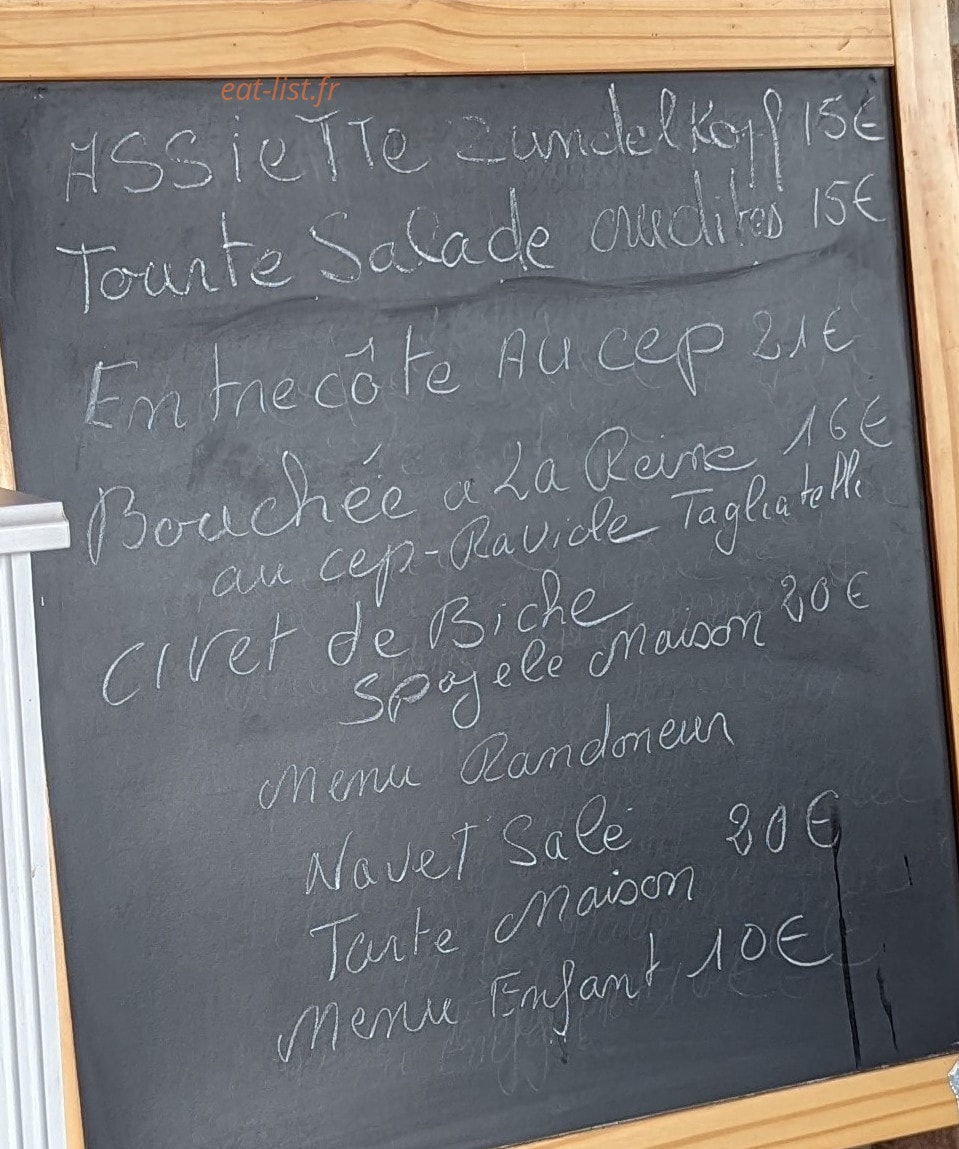 eat-list.fr
ASSieTTe Zundelkopf 15€
Tourte Salade crudites 15€
Entrecôte Au cep 21€
Bouchée a La Reine 16€
au cep-Raviole Tagliatelli
Civet de Biche
Spagele Maison 20€
Menu Randoneur
Navet Salé 20€
Tarte Maison
Menu Enfant 10€